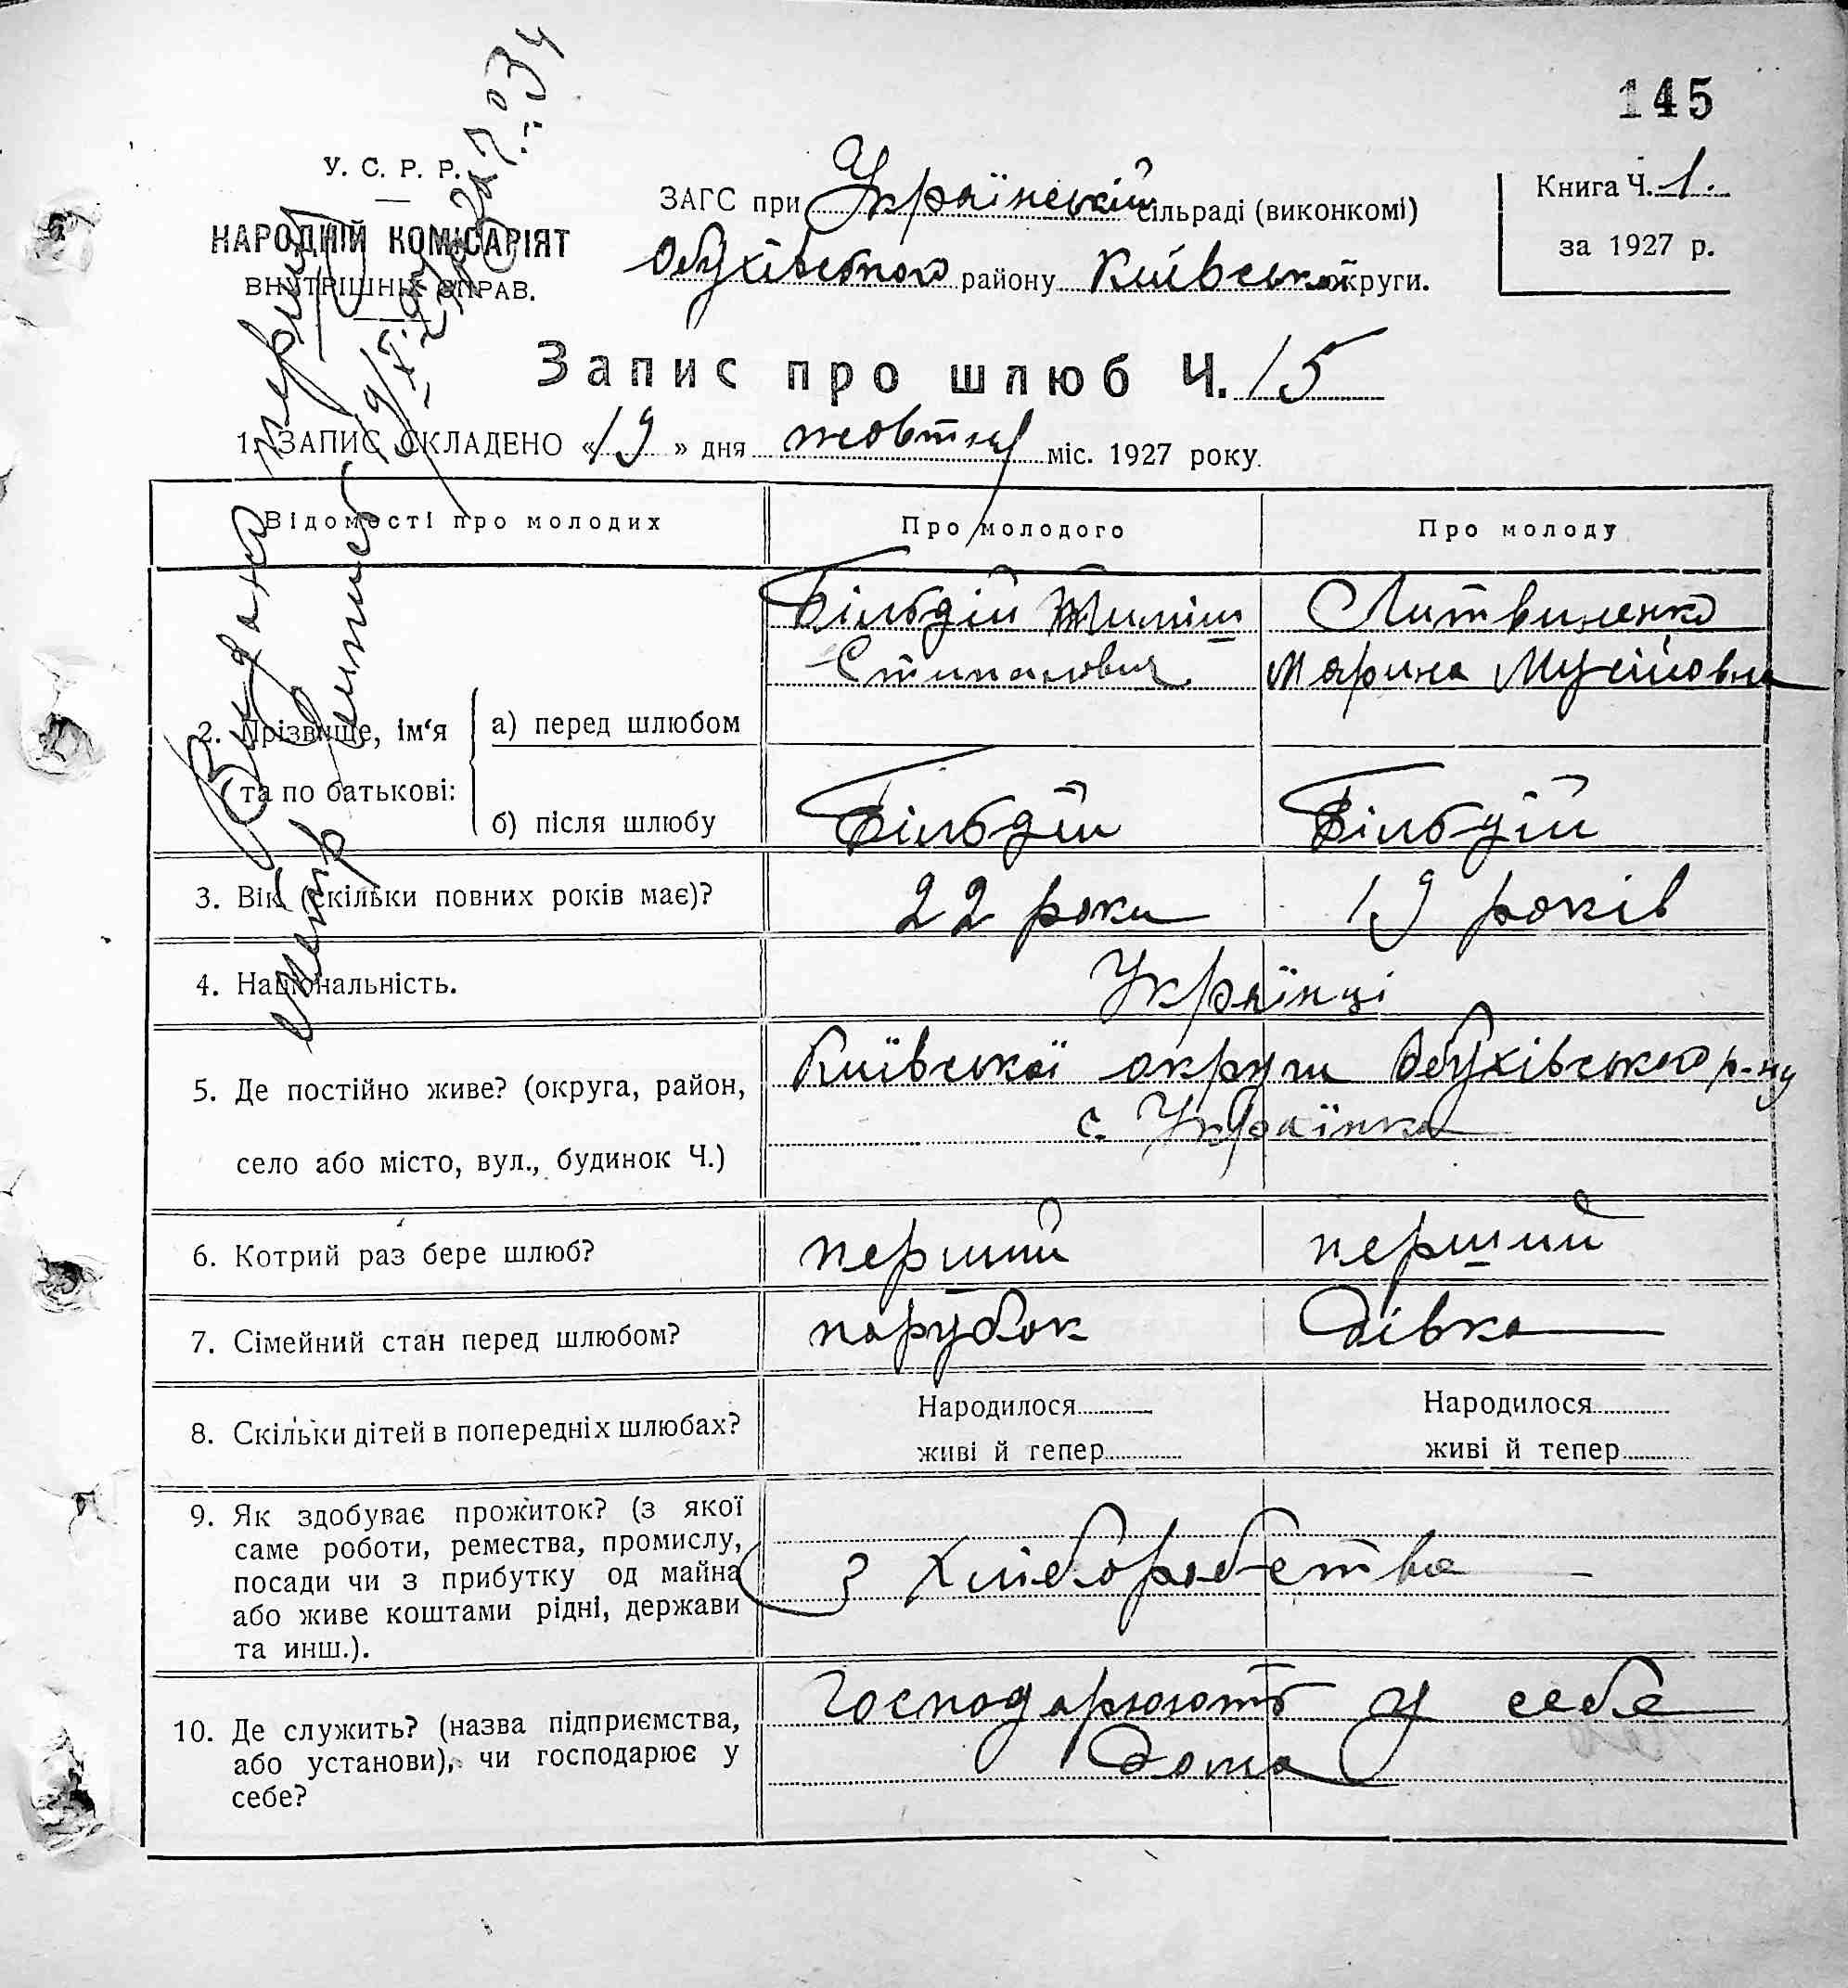 145
У. С. Р. Р.
НАРОДНІЙ КОМІСАРІЯТ
ВНУТРІШНІХ СПРАВ.
ЗАГС при Українській сільраді (виконкомі)
Обухівського району Київської округи.
Книга Ч. 1.
за 1927 р.
Запис про шлюб Ч. 15
1. ЗАПИС СКЛАДЕНО «19» дня жовтня міс. 1927 року.
Видано перший
Відомості про молодих
Про молодого
Про молоду
2. Прізвище, ім‘я та по батькові:
а) перед шлюбом
Більдій
Степанович
Литвиненко
Марина Мусіївна
б) після шлюбу
Більдій
Більдій
3. Вік (скільки повних років має)?
22 роки
19 років
4. Національність.
Українці
5. Де постійно живе? (округа, район,
село або місто, вул., будинок Ч.)
Київської округи Обухівського р-ну
с. Українка
6. Котрий раз бере шлюб?
перший
перший
7. Сімейний стан перед шлюбом?
парубок
дівка
8. Скільки дітей в попередніх шлюбах?
Народилося
живі й тепер
Народилося
живі й тепер
9. Як здобуває прожиток? (з якої
саме роботи, ремества, промислу,
посади чи з прибутку од майна
або живе коштами рідні, держави
та инш.).
з хліборобства
10. Де служить? (назва підприємства,
або установи), чи господарює у
себе?
Господарюють у себе
дома